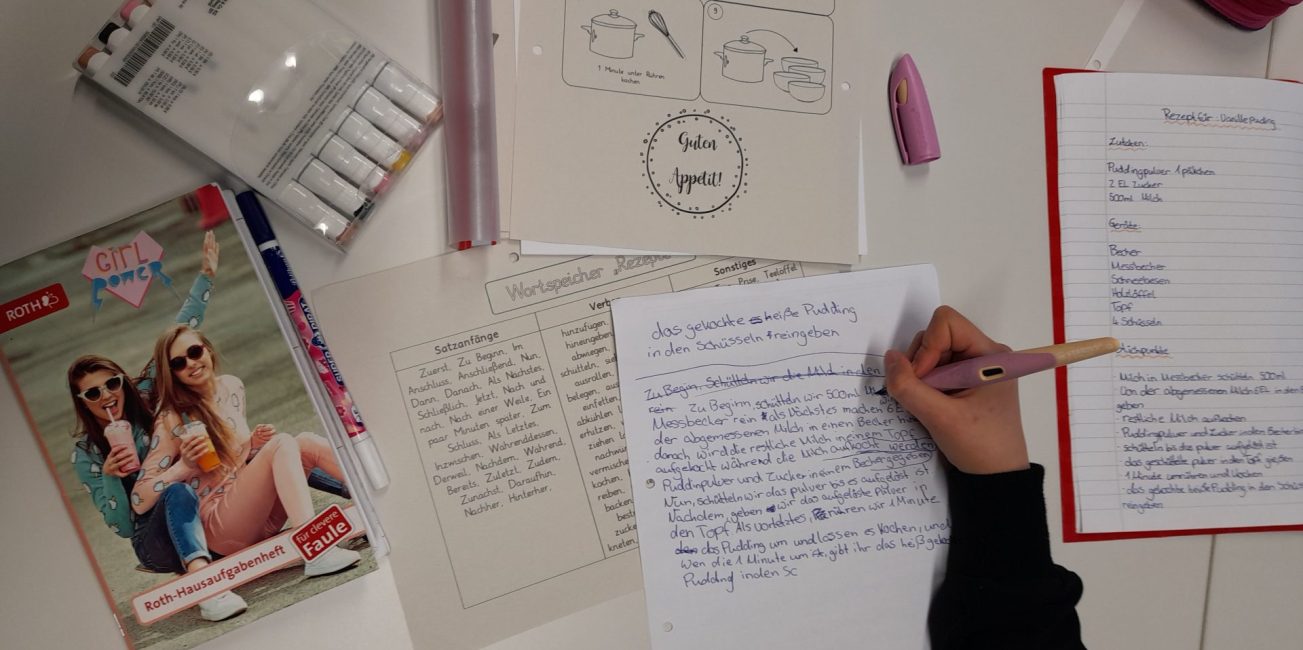 GIRL
POWER
ROTH
für clevere
Faule
Roth-Hausaufgabenheft
1 Minute unter Rühren
kochen
9
Guten
Appetit!
Wortspeicher „Rezept
Satzanfänge
Verb
Sonstiges
Prise, Teelöffel
Zuerst, Zu Beginn, Im
Anschluss, Anschließend, Nun,
Dann, Danach, Als Nächstes,
Schließlich, Jetzt, Nach und
nach, Nach einer Weile, Ein
paar Minuten später, Zum
Schluss, Als Letztes,
Inzwischen, Währenddessen,
Derweil, Nachdem, Während,
Bereits, Zuletzt, Zudem,
Zunächst, Daraufhin,
Nachher, Hinterher,
hinzufügen,
hineingeben
abwiegen,
schütteln, sie
ausrollen,
belegen, aus
einfetten,
abkühlen
erhitzen,
ziehen
nachwür
vermische
kochen,
reiben,
backen
best
zucke
kneten,
das gekochte es heiße Pudding
in den Schüsseln reingeben
Zu Begin, Schütteln wir die Milch in den
rein Zu Beginn, schütteln wir 500ml
Messbecher rein als Nächstes machen 6 E
der abgemessenen Milch in einen Becher
danach wird die restliche Milch in einen Topf
aufgekocht während die Milch aufkocht werden
Puddinpulver und Zucker in einem Becher gegeben
Nun, schütteln wir das pulver bis es aufgelöst ist
Nachdem, geben wir das aufgelöste Pulver in
den Topf. Als vorletztes, rühren wir 1 Minute
das Pudding um und lassen es kochen, und
Wen die 1 Minute um ist, gibt ihr das heiß
Pudding in den Sc
Rezept für: Vanillepuding
Zutaten:
Puddingpulver 1 päkchen
2 EL Zucker
500ml Milch
Geräte:
Becher
Messbecher
Schneebesen
Holzlöffel
Topf
4 Schüsseln
Stichpunkte
Milch in Messbecher schütteln 500ml
Von der abgemessenen Milch 6EL in den
geben
restliche Milch aufkochen
Puddingpulver und Zucker in den Becher
schütteln bis das pulver aufgelöst ist
das geschüttelte pulver in den Topf gießen
1 Minute umrühren und kochen
das gekochte heiße Pudding in den Schüs
reingeben